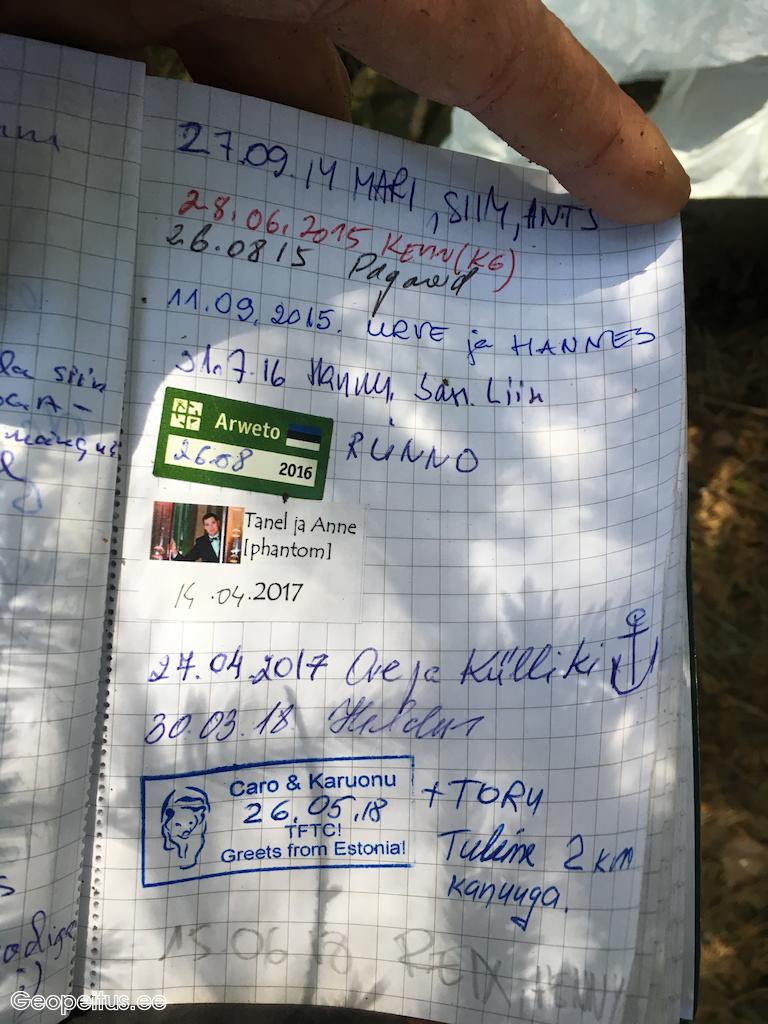 27.09.14 MARI, SIIM, ANTS
28.06.2015 KENN(KG)
26.0815
11.09.2015. URVE ja HANNES
31.7.16 Liin
Arweto
26.08 2016
RÜNNO
Tanel ja Anne
[phantom]
14.04.2017
27.04.2017 Ove ja Külliki
30.03.18
Caro & Karuonu
26.05.18
TFTC!
Greets from Estonia!
+ TORU
Tulime 2 km
kanuuga.
15.06 18 HENNY
la siin
Geopeitus.ee